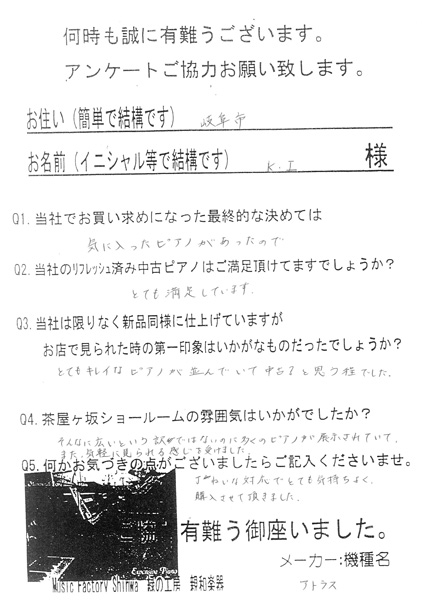 何時も誠に有難うございます。
アンケートご協力お願い致します。
お住い(簡単で結構です) 岐阜市
お名前(イニシャル等で結構です) K.I 様
Q1.当社でお買い求めになった最終的な決めては
気に入ったピアノがあったので
Q2.当社のﾘﾌﾚｯｼｭ済み中古ピアノはご満足頂けてますでしょうか?
とても満足しています。
Q3.当社は限りなく新品同様に仕上げていますが
お店で見られた時の第一印象はいかがなものだったでしょうか?
とてもキレイなピアノが並んでいて中古?と思う程でした。
Q4.茶屋ヶ坂ショールームの雰囲気はいかがでしたか?
そんなに広いという訳ではないのに多くのピアノが展示されていて、
また、気軽に見られる感じを受けました。
Q5.何かお気づきの点がございましたらご記入くださいませ。
ていねいな対応でとても気持ちよく
購入させて頂きました。
有難う御座いました。
Expensive Piano
メーカー:機種名
Music Factory Shinwa 親和楽器
アトラス